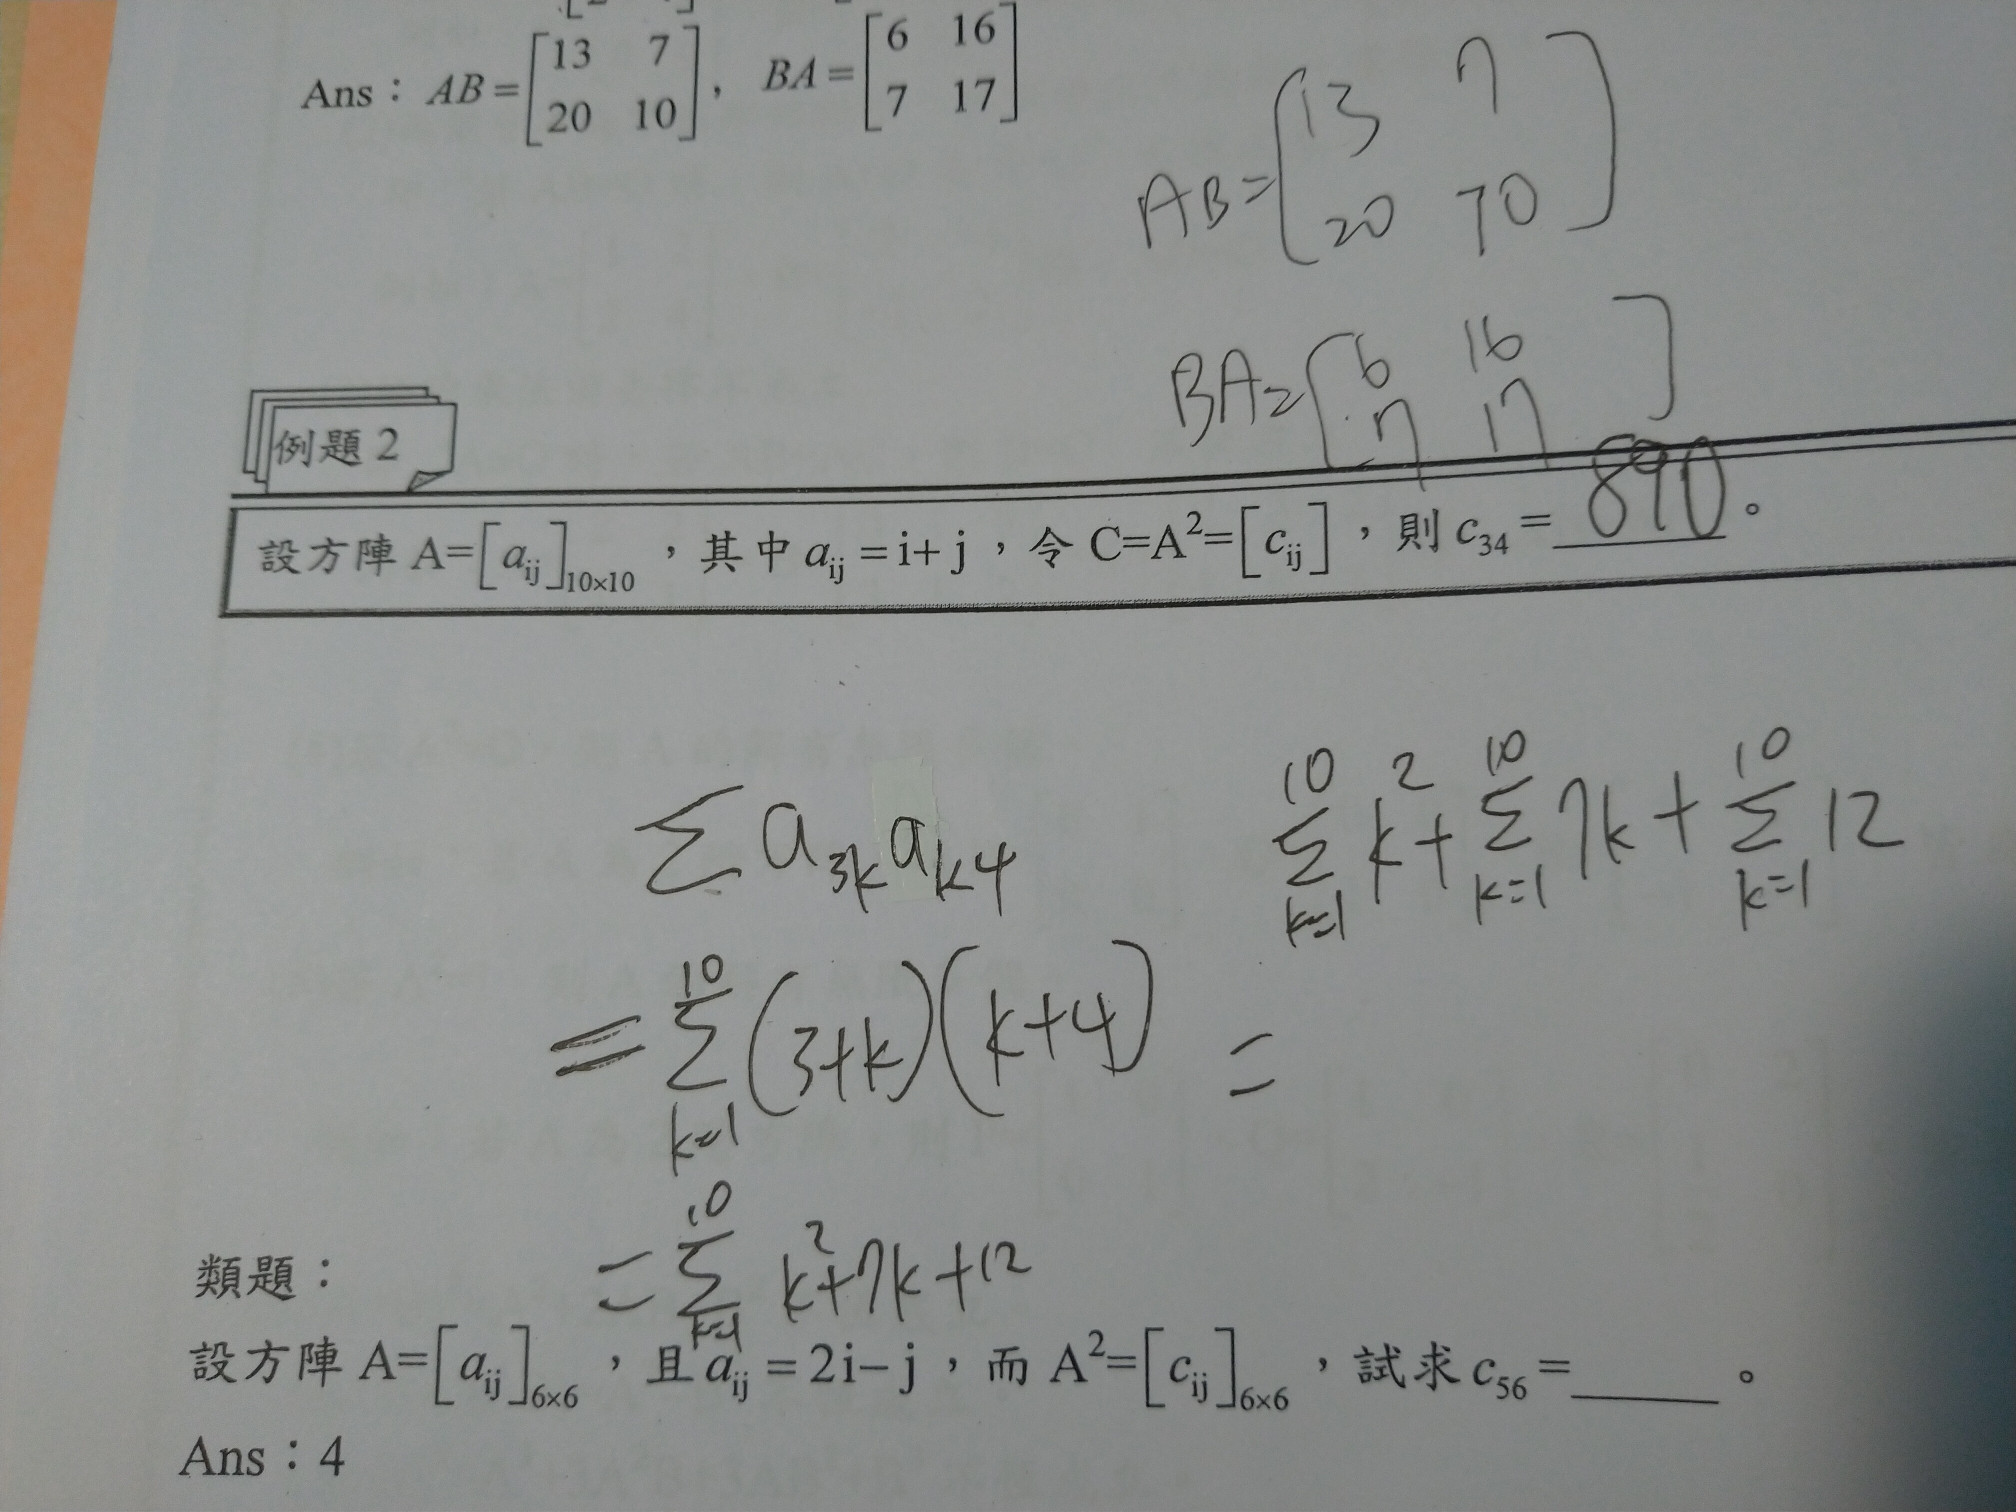 Ans：AB=[13 7 20 10]，BA=[6 16 7 17]
AB=[13 7 20 70]
BA=[6 16 7 17]
例題 2
設方陣 A=[aij]10×10，其中 aij = i+ j，令 C=A²=[cij]，則 c34 = 890。
Σ a3k ak4
= Σ k=1 10 (3+k)(k+4)
= Σ k=1 10 k²+7k+12
Σ k=1 10 k² + Σ k=1 10 7k + Σ k=1 10 12
=
類題：
設方陣 A=[aij]6×6，且 aij = 2i– j，而 A²=[cij]6×6，試求 c56 =______。
Ans：4